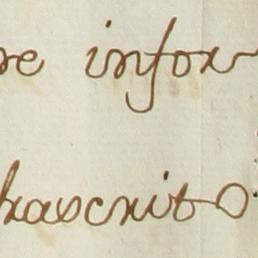 re infor
hascrito